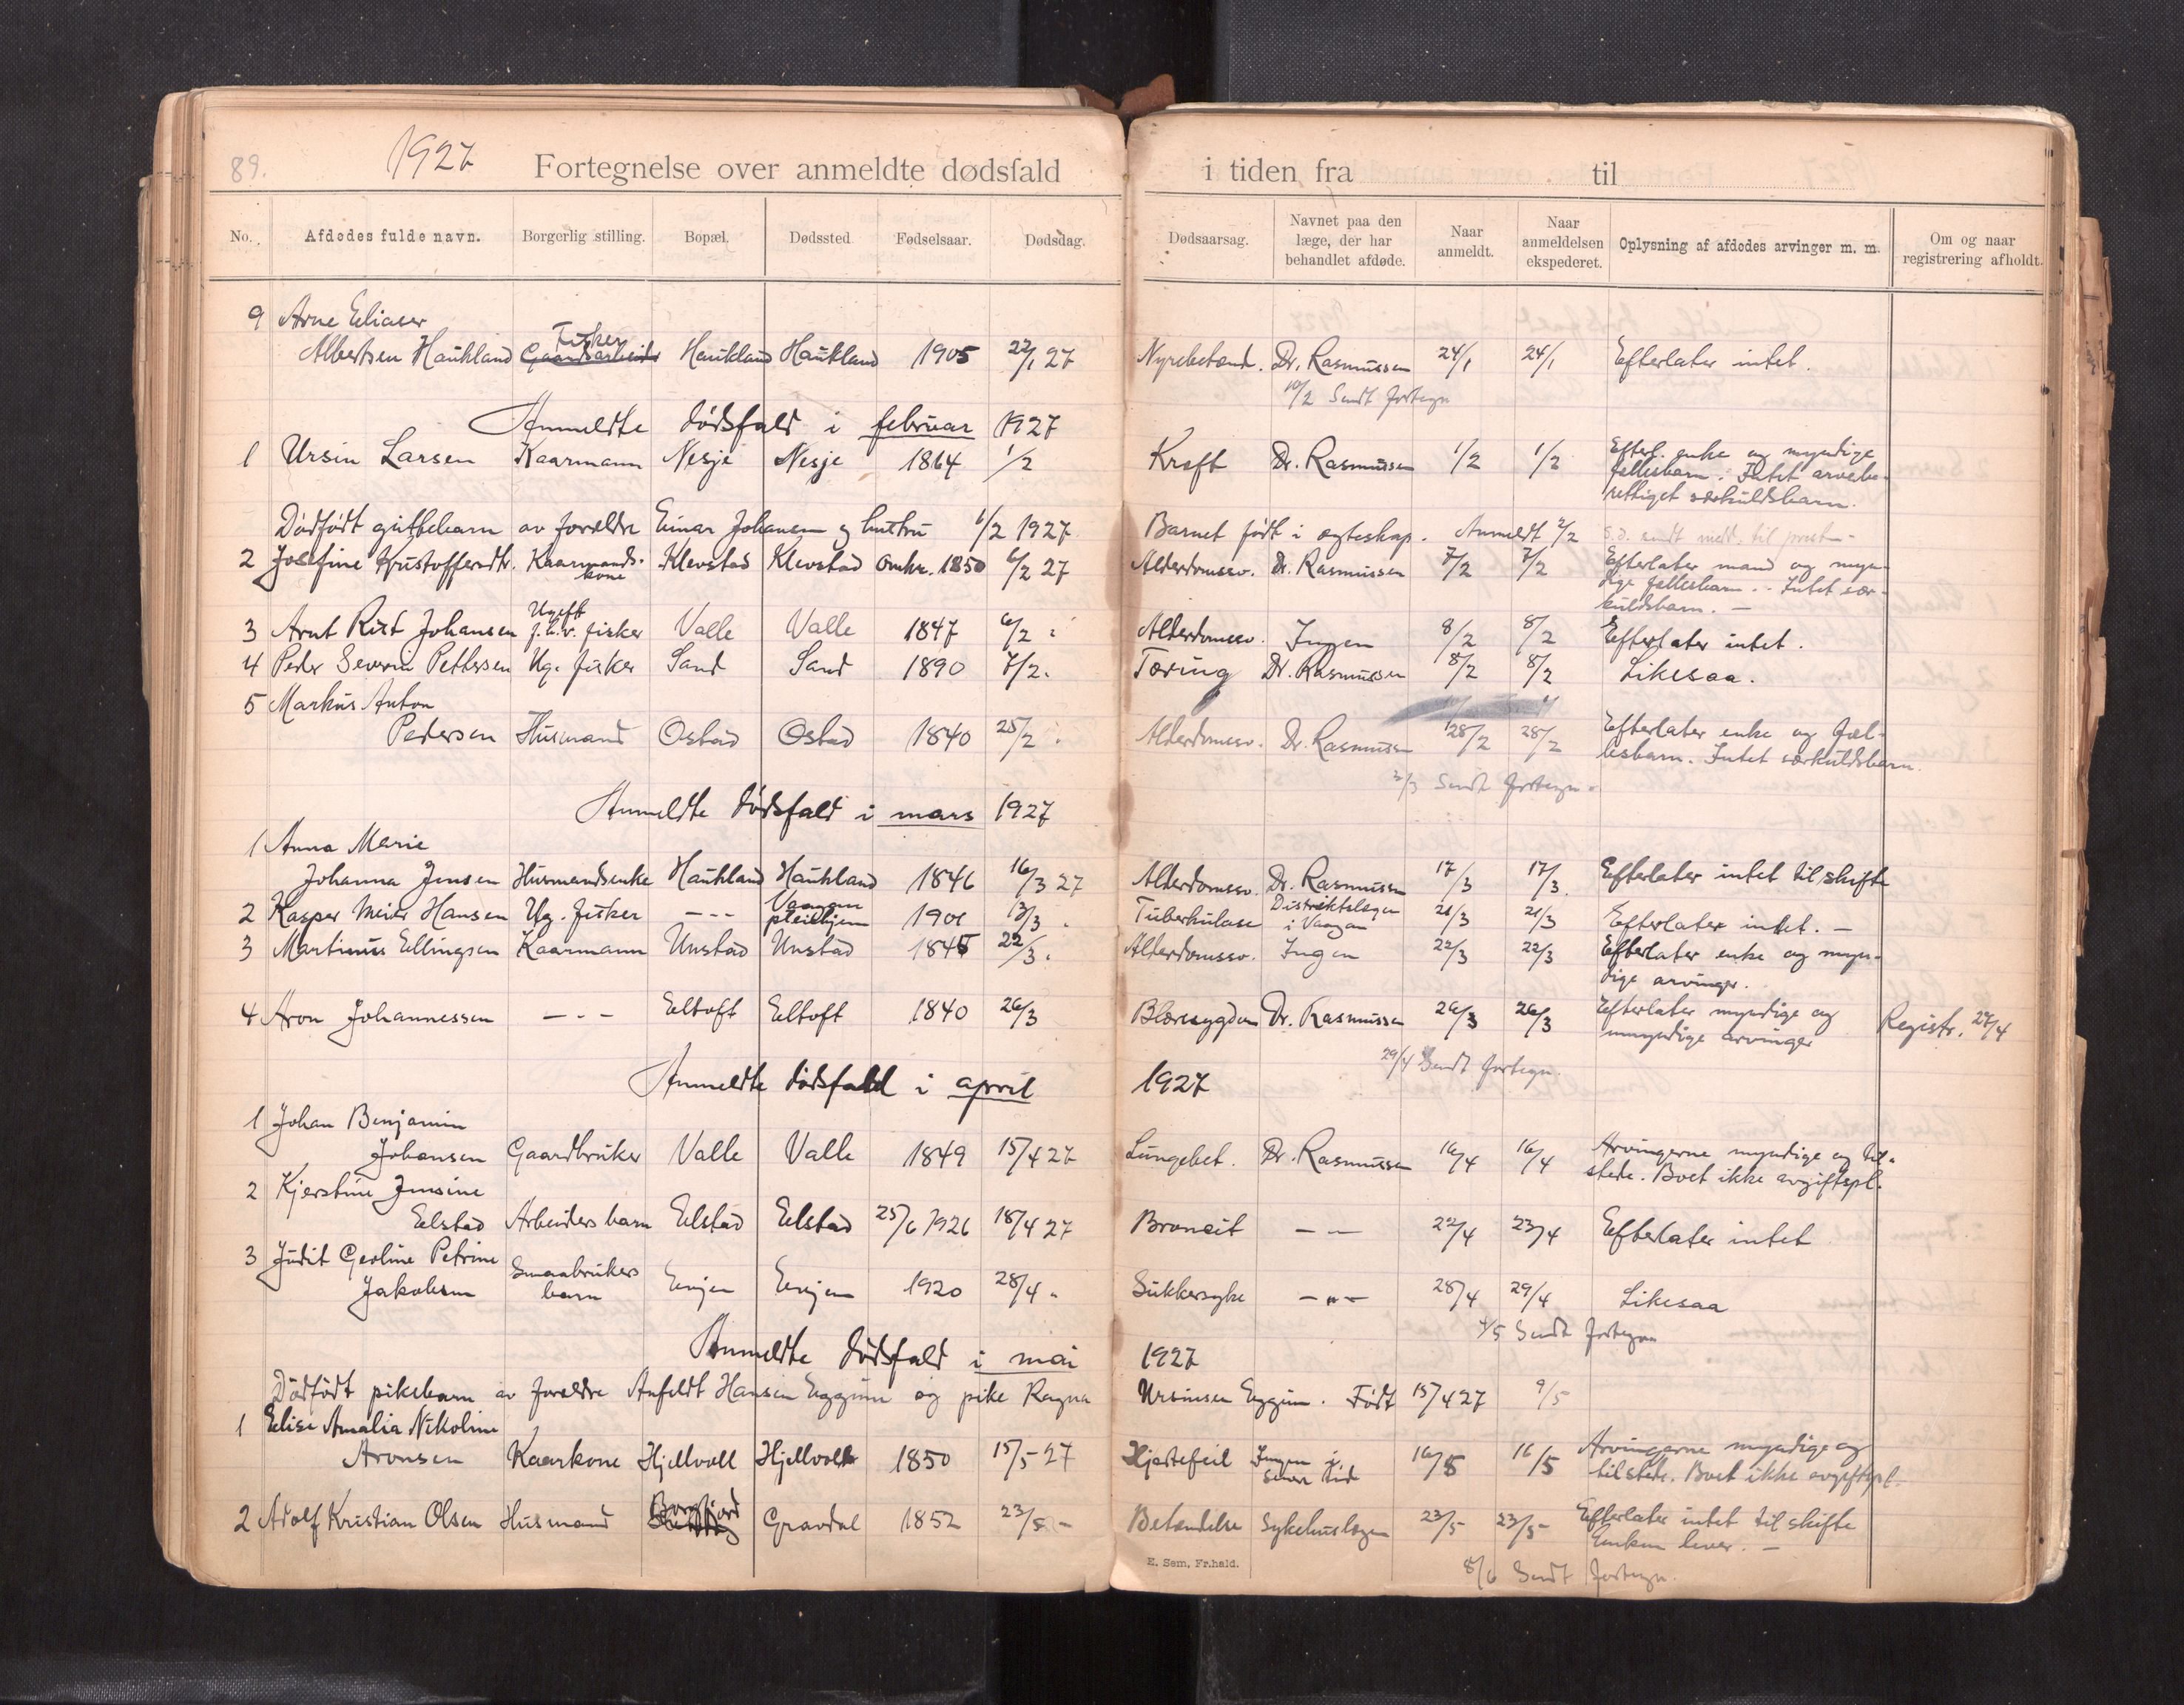 89. 1927 Fortegnelse over anmeldte dødsfald i tiden fra til
No. Afdødes fulde navn. Borgerlig stilling. Bopæl. Dødssted Fødselsaar. Dødsdag. Dødsaarsag. Navnet paa den læge, der har behandlet afdøde. Naar anmeldt. Naar anmeldelsen ekspederet. Oplysning af afdødes arvinger m. m. Om og naar registrering afholdt.
9 Arne Eeliaser
Fisker
Albertsen Haukland Gaardsarbeider Haukland Haukland 1905 22/1 27 Nyrebetænd. Dr. Rasmussen 24/1 24/1 Efterlater intet.
10/2 Sendt fortegn
Anmeldte dødsfald i februar 1927
1 Ursin Larsen Kaarmann Nesje Nesje 1864 1/2 Kreft Dr. Rasmussen 1/2 1/2 Efterl. enke og myndige
fællesbarn. Intet arvebe-
rettiget særkuldsbarn.
Dødfødt guttebarn av forældre Einar Johansen og hustru 1/2 1927. Barnet født i egteskap. Anmeldt 2/2 s.d. sendt medd. til prest-
2 Josefine Kristoffersdtr. Kaarmands-
kone Klevstad Klevstad omkr. 1850 6/2 27 Alderdomssv. Dr. Rasmussen 7/2 7/2 Efterlater mand og myn-
dige fællesbarn. - Intet sær-
kuldsbarn. -
Ugift
3 Arnt Rist Johansen f.h.v. fisker Valle Valle 1847 6/2 Alderdomssv. Ingen 8/2 8/2 Efterlater intet.
4 Peder Severin Pettersen Ug. fisker Sand Sand 1890 7/2. Tæring Dr. Rasmussen 8/2 8/2 Likesaa.
5 Markus Anton
Pedersen Husmand Ostad Ostad 1840 25/2 Alderdomssv. Dr. Rasmussen 28/2 28/2 Efterlater enke og fæl-
lesbarn. Intet særkuldsbarn
3/3 Sendt fortegn.
Anmeldte dødsfald i mars 1927
1 Anna Marie
Johanna Jensen Husmandsenke Haukland Haukland 1846 16/3 27 Alderdomssv. Dr. Rasmussen 17/3 17/3. Efterlater intet til skifte
2 Kasper Meier Hansen Ug. fisker - - - Vaagan
pleiehjem 1901 13/3 Tuberkulose Distriktslægen
i Vaagan 21/3 21/3 Efterlater intet. -
3 Martinus Ellingsen Kaarmann Unstad Unstad 1845 22/3. Alderdomssv. Ingen 22/3 22/3 Efterlater enke og myn-
dige arvinger.
4 Aron Johannessen - - - Eeltoft Eeltoft 1840 26/3 Blæresygdom Dr. Rasmussen 26/3 26/3 Efterlater myndige og
umyndige arvinger Registr. 27/4
29/4 Sendt fortegn.
Anmeldte dødsfald i april 1927
1 Johan Benjamin
Johansen Gaardbruker Valle Valle 1849 15/4 27 Lungebet. Dr. Rasmussen 16/4 16/4 Arvingerne myndige og til-
stede. Boet ikke avgiftspl.
2 Kjerstine Jensine
Eelstad Arbeiders barn Eelstad Eelstad 25/6 1926 18/4 27 Broncit - - 22/4 23/4 Efterlater intet
3 Judit Geoline Petrine
Jakobsen Smaabrukers
barn Evjen Evjen 1920 28/4 " Sukkersyke - " - 28/4 29/4 Likesaa
4/5 Sendt fortegn
Anmeldte dødsfald i mai 1927
Dødfødt pikebarn av forældre Anfeldt Hansen Eggum og pike Ragna Ursinsen Eggum. Født 15/4 27 9/5
1 Elise Amalia Nikoline
Aronsen Kaarkone Hjellvoll Hjellvoll 1850 15/5 27 Hjertefeil Ingen i
senere tid 16/5 16/5 Arvingerne myndige og
tilstede. Boet ikke avgiftspl.
2 Adolf Kristian Olsen Husmand Borgfjord Gravdal 1852 23/5 - Betændelse Sykehuslægen 23/5 23/5 - Efterlater intet til skifte
Enken lever. -
E. Sem, Fr.hald.
8/6 Sendt fortegn.